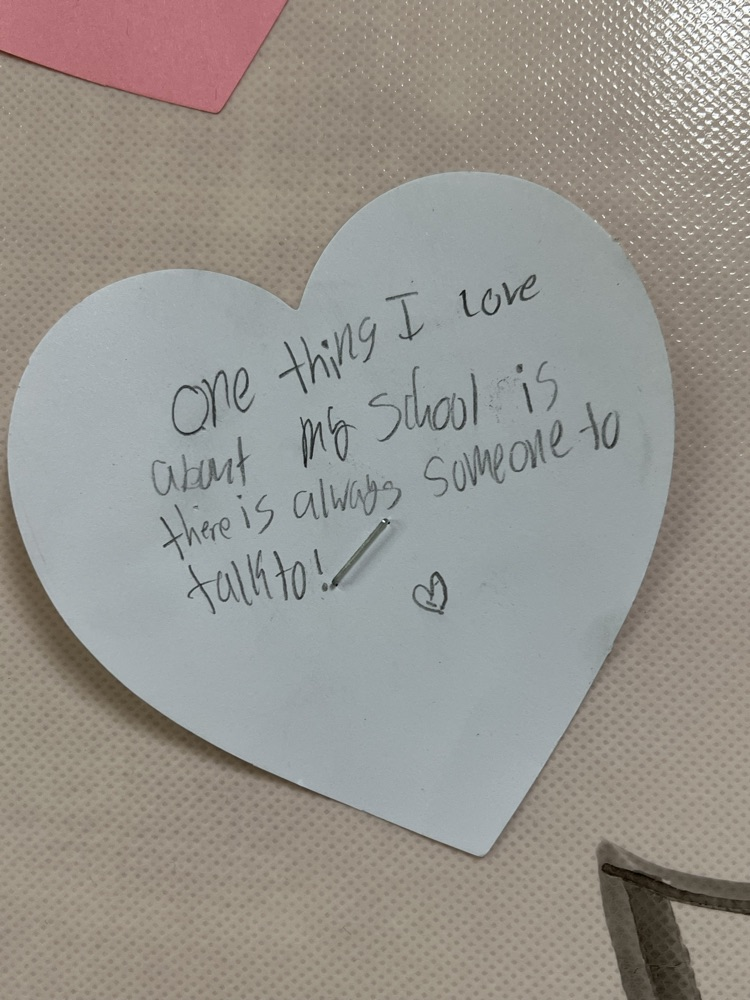 One thing I love
about my school is
there is always someone to
talk to!